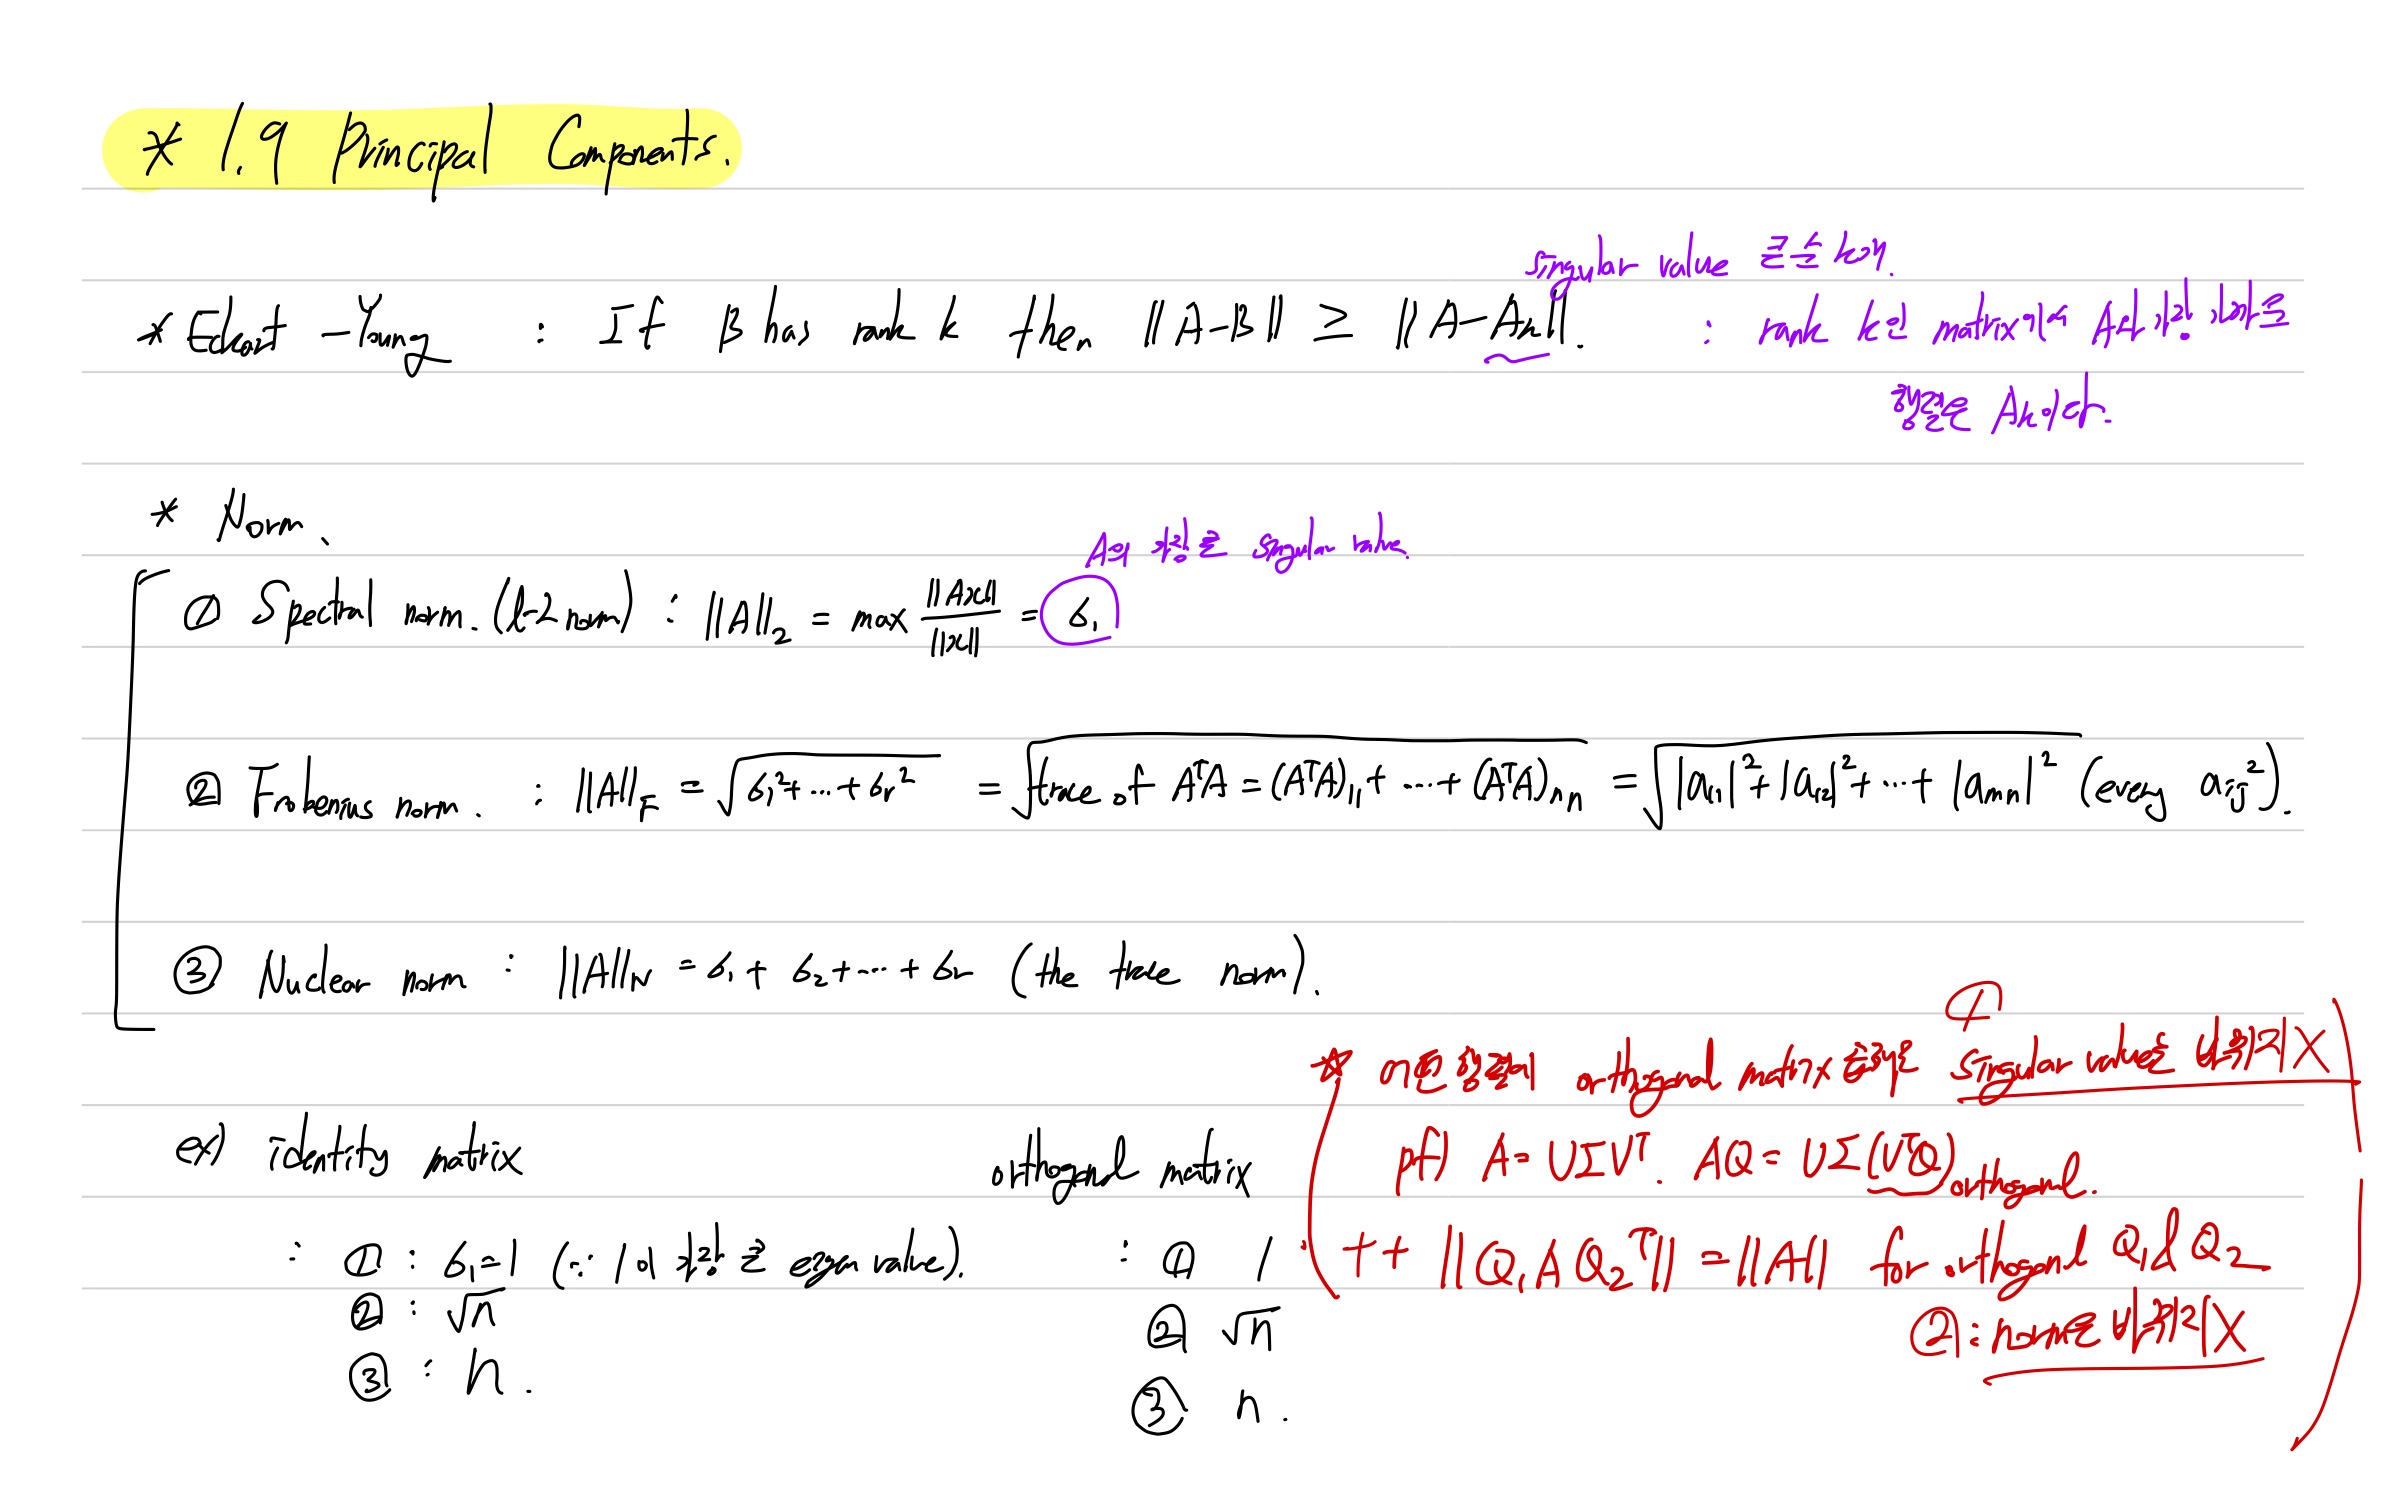 * 1.9 Principal Components.
singular value 큰순 k개.
* Eckart - Young : If B has rank k then ||A-B|| ≥ ||A-Ak||. : rank k인 matrix중에 A와 가장 가까운
행렬은 Ak이다.
* Norm.
A의 가장 큰 singular value.
① Spectral norm. (l-2 norm) : ||A||₂ = max ||Ax|| / ||x|| = σ₁
② Frobenius norm. : ||A||F = √(σ₁²+...+σr²) = √(trace of AᵀA = (AᵀA)₁₁ + ... + (AᵀA)nn) = √(|a₁₁|² + |a₁₂|² + ... + |amn|²) (every aij²).
③ Nuclear norm : ||A||N = σ₁ + σ₂ + ... + σr (the trace norm).
ex) identity matrix
: ① : σ₁=1 (∵ 1이 가장 큰 eigen value).
② : √n
③ : n.
orthogonal matrix
: ① 1
② √n
③ n.
①
* 어떤 행렬에 orthogonal matrix 곱해도 singular value는 바뀌지 X
pf) A = UΣVᵀ. AQ = UΣ(VᵀQ) orthogonal.
++ ||Q₁AQ₂ᵀ|| = ||A|| for orthogonal Q₁ & Q₂
② : norm도 바뀌지 X